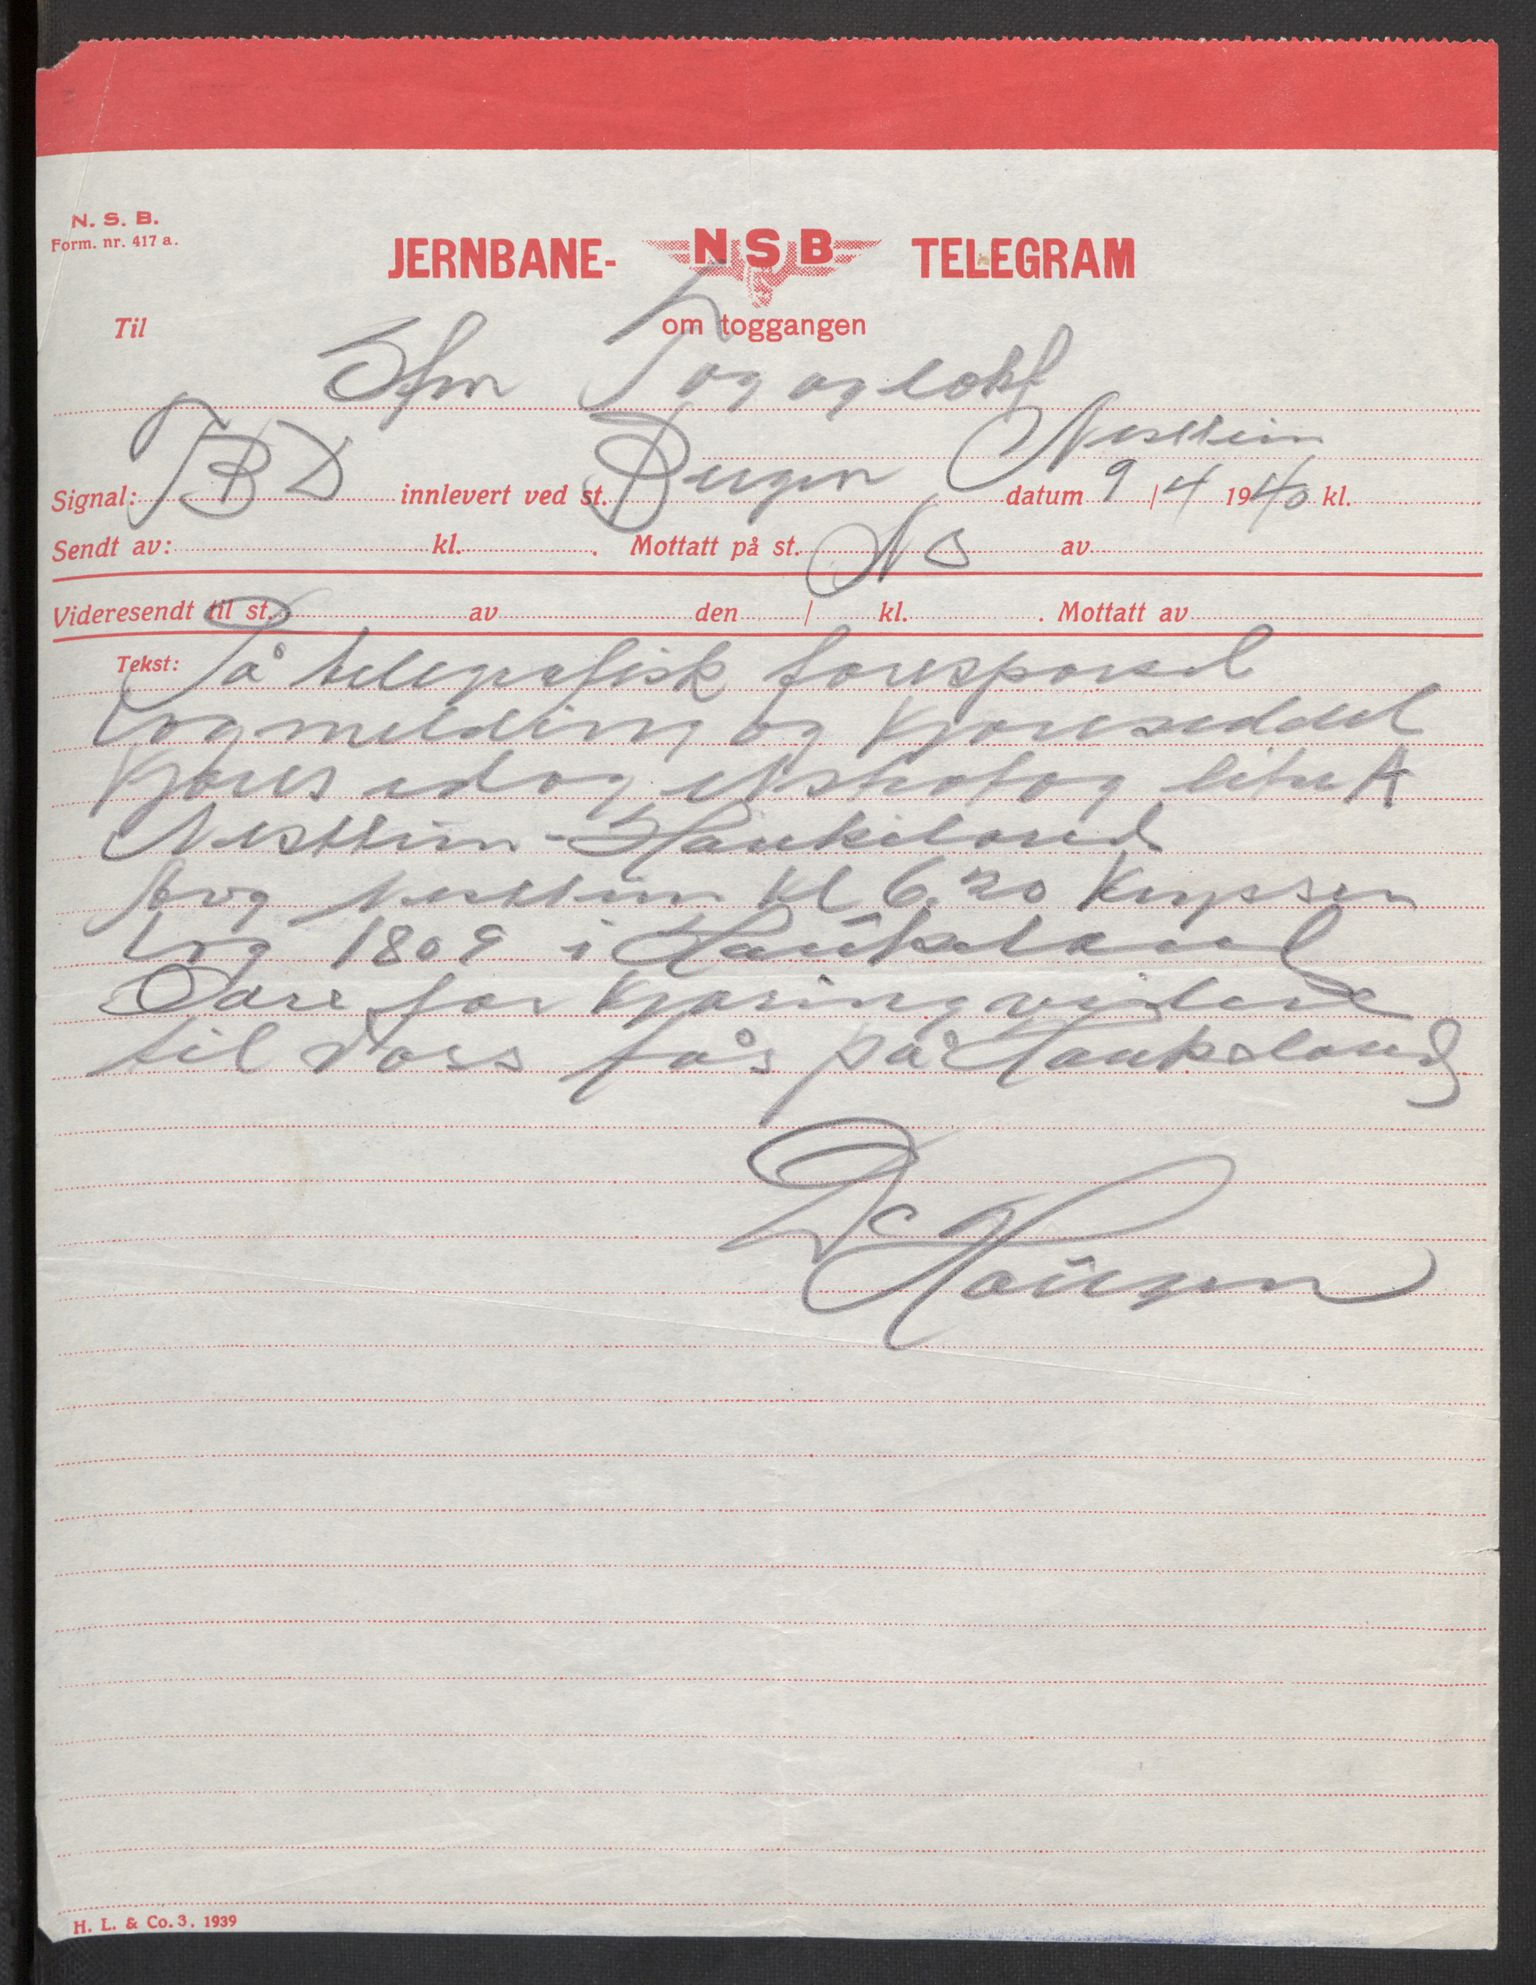 N. S. B.
Form. nr. 417 a.
JERNBANE- NSB TELEGRAM
om toggangen
Til
Sfm Tog og lokf
Nesttun
Signal: TBD innlevert ved st. Bergen datum 9/4 1940 kl.
Sendt av: kl. . Mottatt på st. No av
Videresendt til st. av den / kl. . Mottatt av
Tekst: På telegrafisk forespørsel
togmelding og kjøreseddel
kjøres idag ekstratog litra A
Nesttun - Haukeland
Avg Nesttun kl 6.20 Krysser
tog 1809 i Haukeland
Ordre for kjøring videre
til Voss fås på Haukeland
Dc Haugen
H. L. & Co. 3. 1939